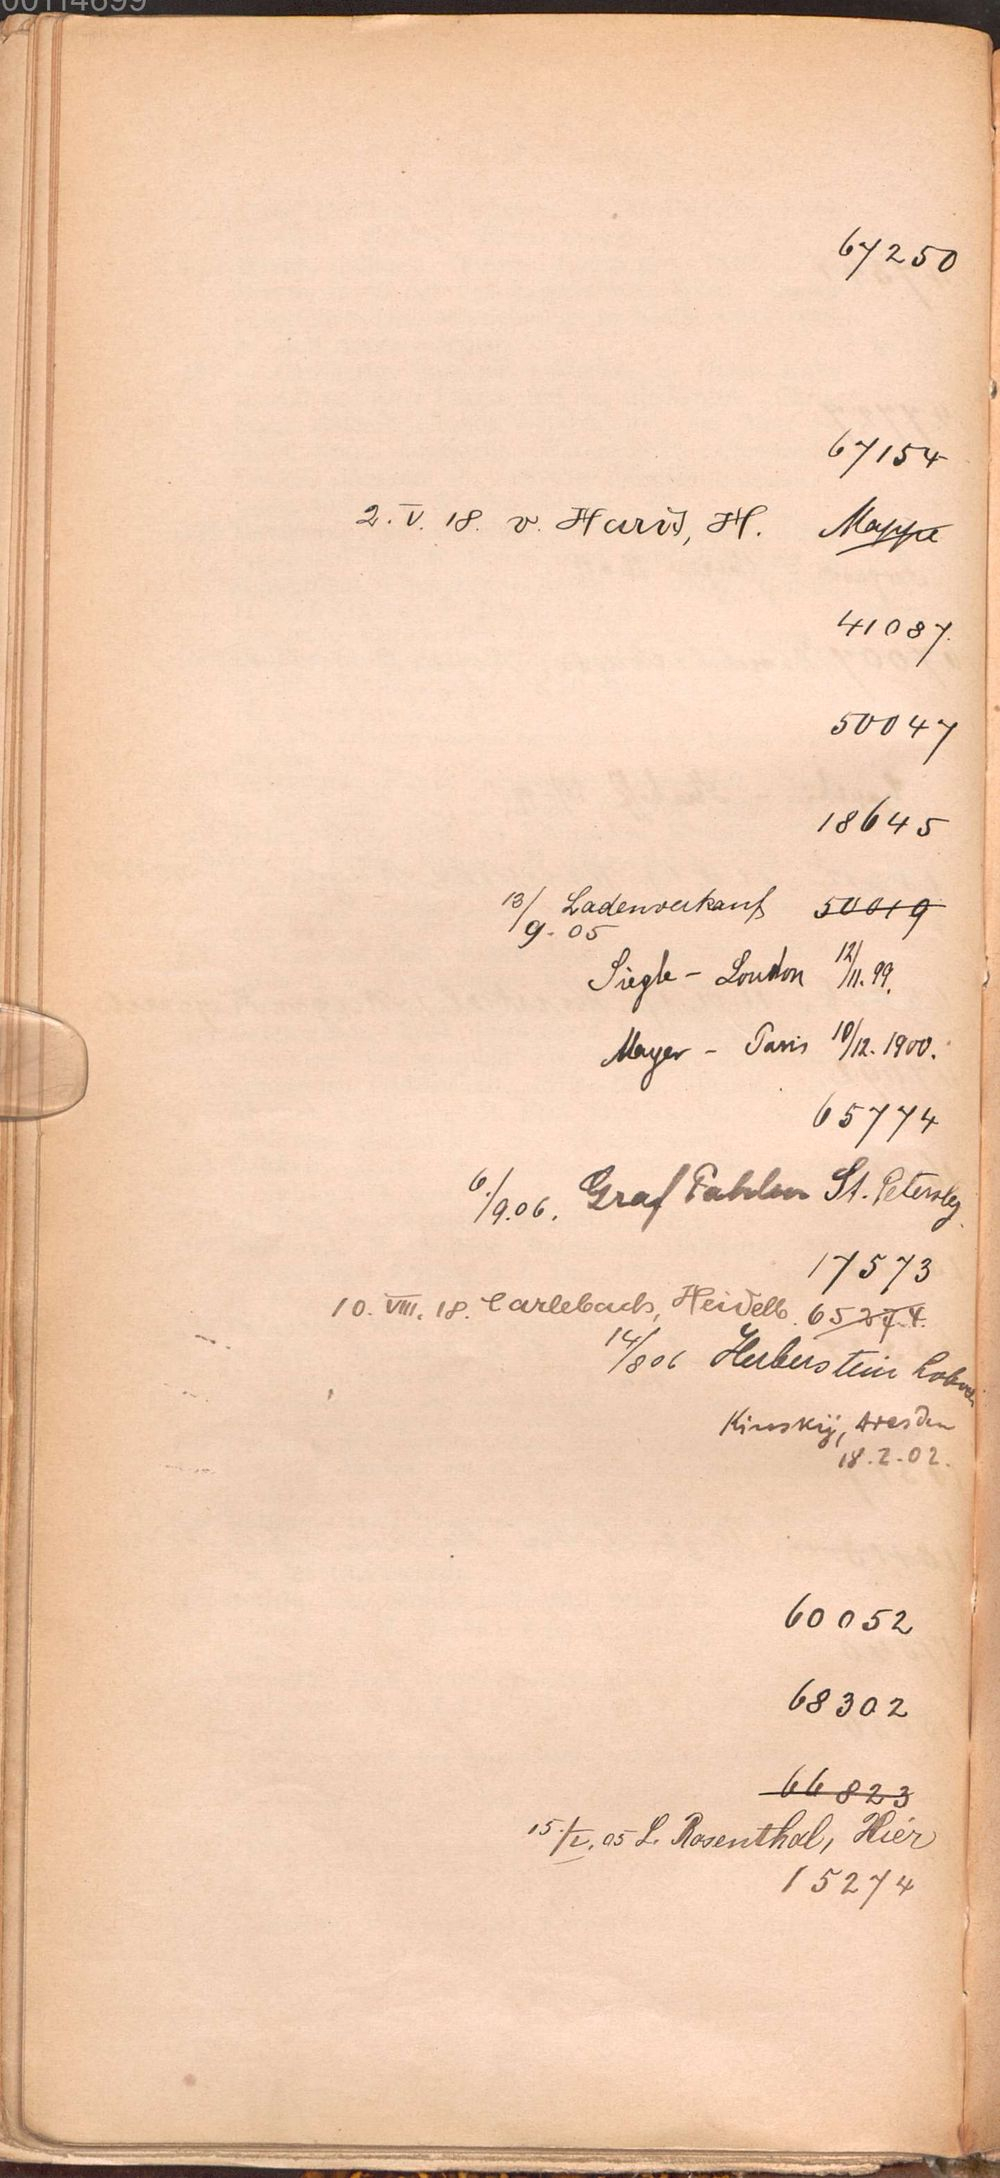 00114699
67250
67154
2. V. 18. v. H. Mappe
41087.
50047
18645
13/9. 05 Ladenverkauf 50019
Siegle - London 12/11. 99.
Mayer - Paris 10/12. 1900.
65774
6./9.06. Graf Pahlen St. Petersbg.
17573
10. VIII. 18. Carlebach, Heidelb. 65274.
14/806 Herberstein
Kinskij, Dresden
18.2.02.
60052
68302
66823
15./I. 05 L. Rosenthal, Hier
15274